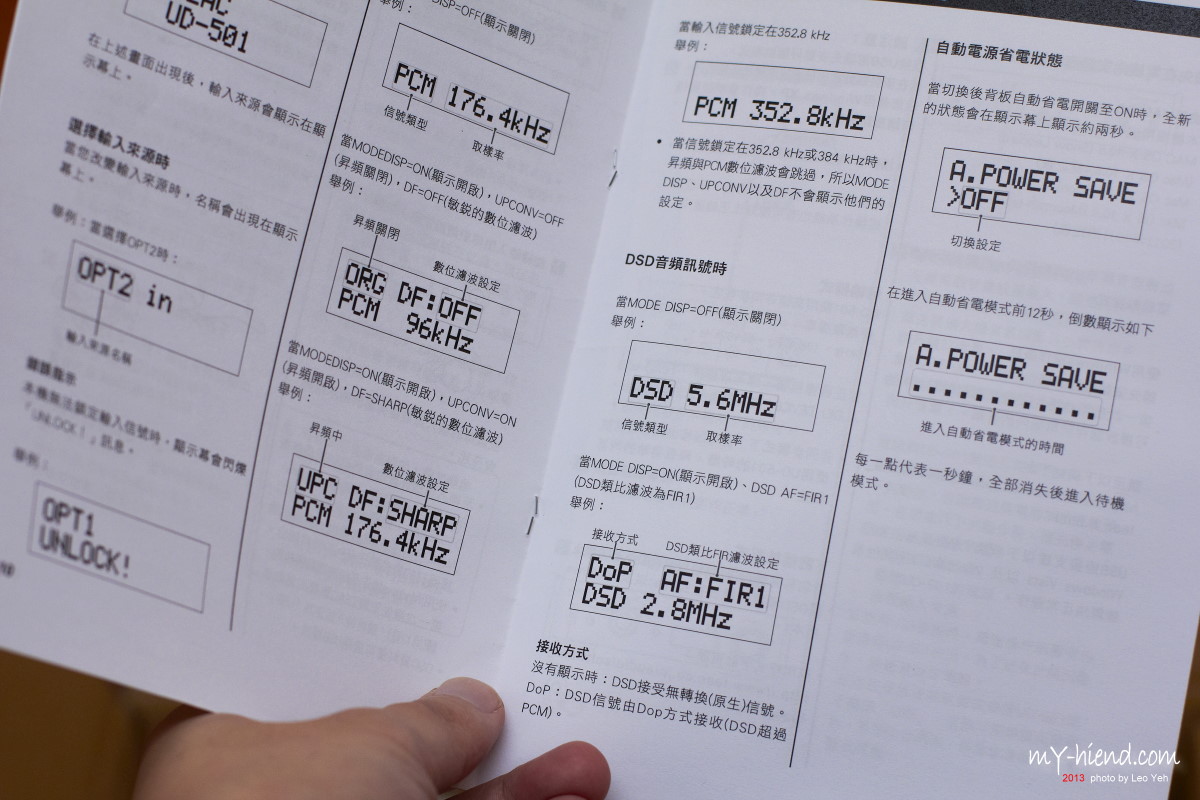 UD-501
在上述畫面出現後，輸入來源會顯示在顯
示幕上。
選擇輸入來源時
當您改變輸入來源時，名稱會出現在顯示
幕上。
舉例：當選擇OPT2時：
OPT2 in
輸入來源名稱
本機無法鎖定輸入信號時，顯示幕會閃爍
「UNLOCK！」訊息。
舉例：
OPT1
UNLOCK!
DISP=OFF(顯示關閉)
舉例：
PCM 176.4kHz
信號類型
取樣率
當MODEDISP=ON(顯示開啟)，UPCONV=OFF
(昇頻關閉)，DF=OFF(敏銳的數位濾波)
舉例：
昇頻關閉
數位濾波設定
ORG DF:OFF
PCM 96kHz
當MODEDISP=ON(顯示開啟)，UPCONV=ON
(昇頻開啟)，DF=SHARP(敏銳的數位濾波)
舉例：
昇頻中
數位濾波設定
UPC DF:SHARP
PCM 176.4kHz
當輸入信號鎖定在352.8 kHz
舉例：
PCM 352.8kHz
• 當信號鎖定在352.8 kHz或384 kHz時，
昇頻與PCM數位濾波會跳過，所以MODE
DISP、UPCONV以及DF不會顯示他們的
設定。
DSD音頻訊號時
當MODE DISP=OFF(顯示關閉)
舉例：
DSD 5.6MHz
信號類型
取樣率
當MODE DISP=ON(顯示開啟)、DSD AF=FIR1
(DSD類比濾波為FIR1)
舉例：
接收方式
DSD類比FIR濾波設定
DoP AF:FIR1
DSD 2.8MHz
接收方式
沒有顯示時：DSD接受無轉換(原生)信號。
DoP：DSD信號由Dop方式接收(DSD超過
PCM)。
自動電源省電狀態
當切換後背板自動省電開關至ON時，全新
的狀態會在顯示幕上顯示約兩秒。
A.POWER SAVE
>OFF
切換設定
在進入自動省電模式前12秒，倒數顯示如下
A.POWER SAVE
............
進入自動省電模式的時間
每一點代表一秒鐘，全部消失後進入待機
模式。
mY-hiend.com
2013 photo by Leo Yeh